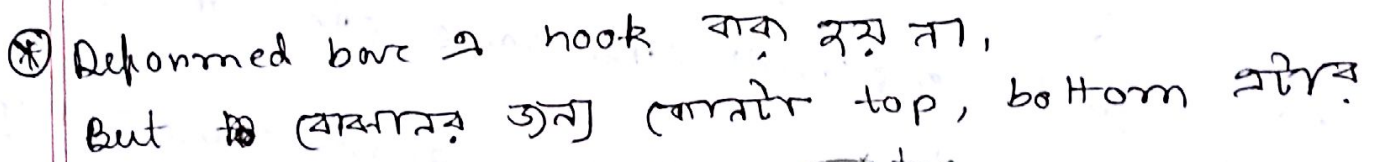 ⊛ Deformed bar এ hook বাকা হয় না,
But বোঝানোর জন্য কোনটা top, bottom এটার